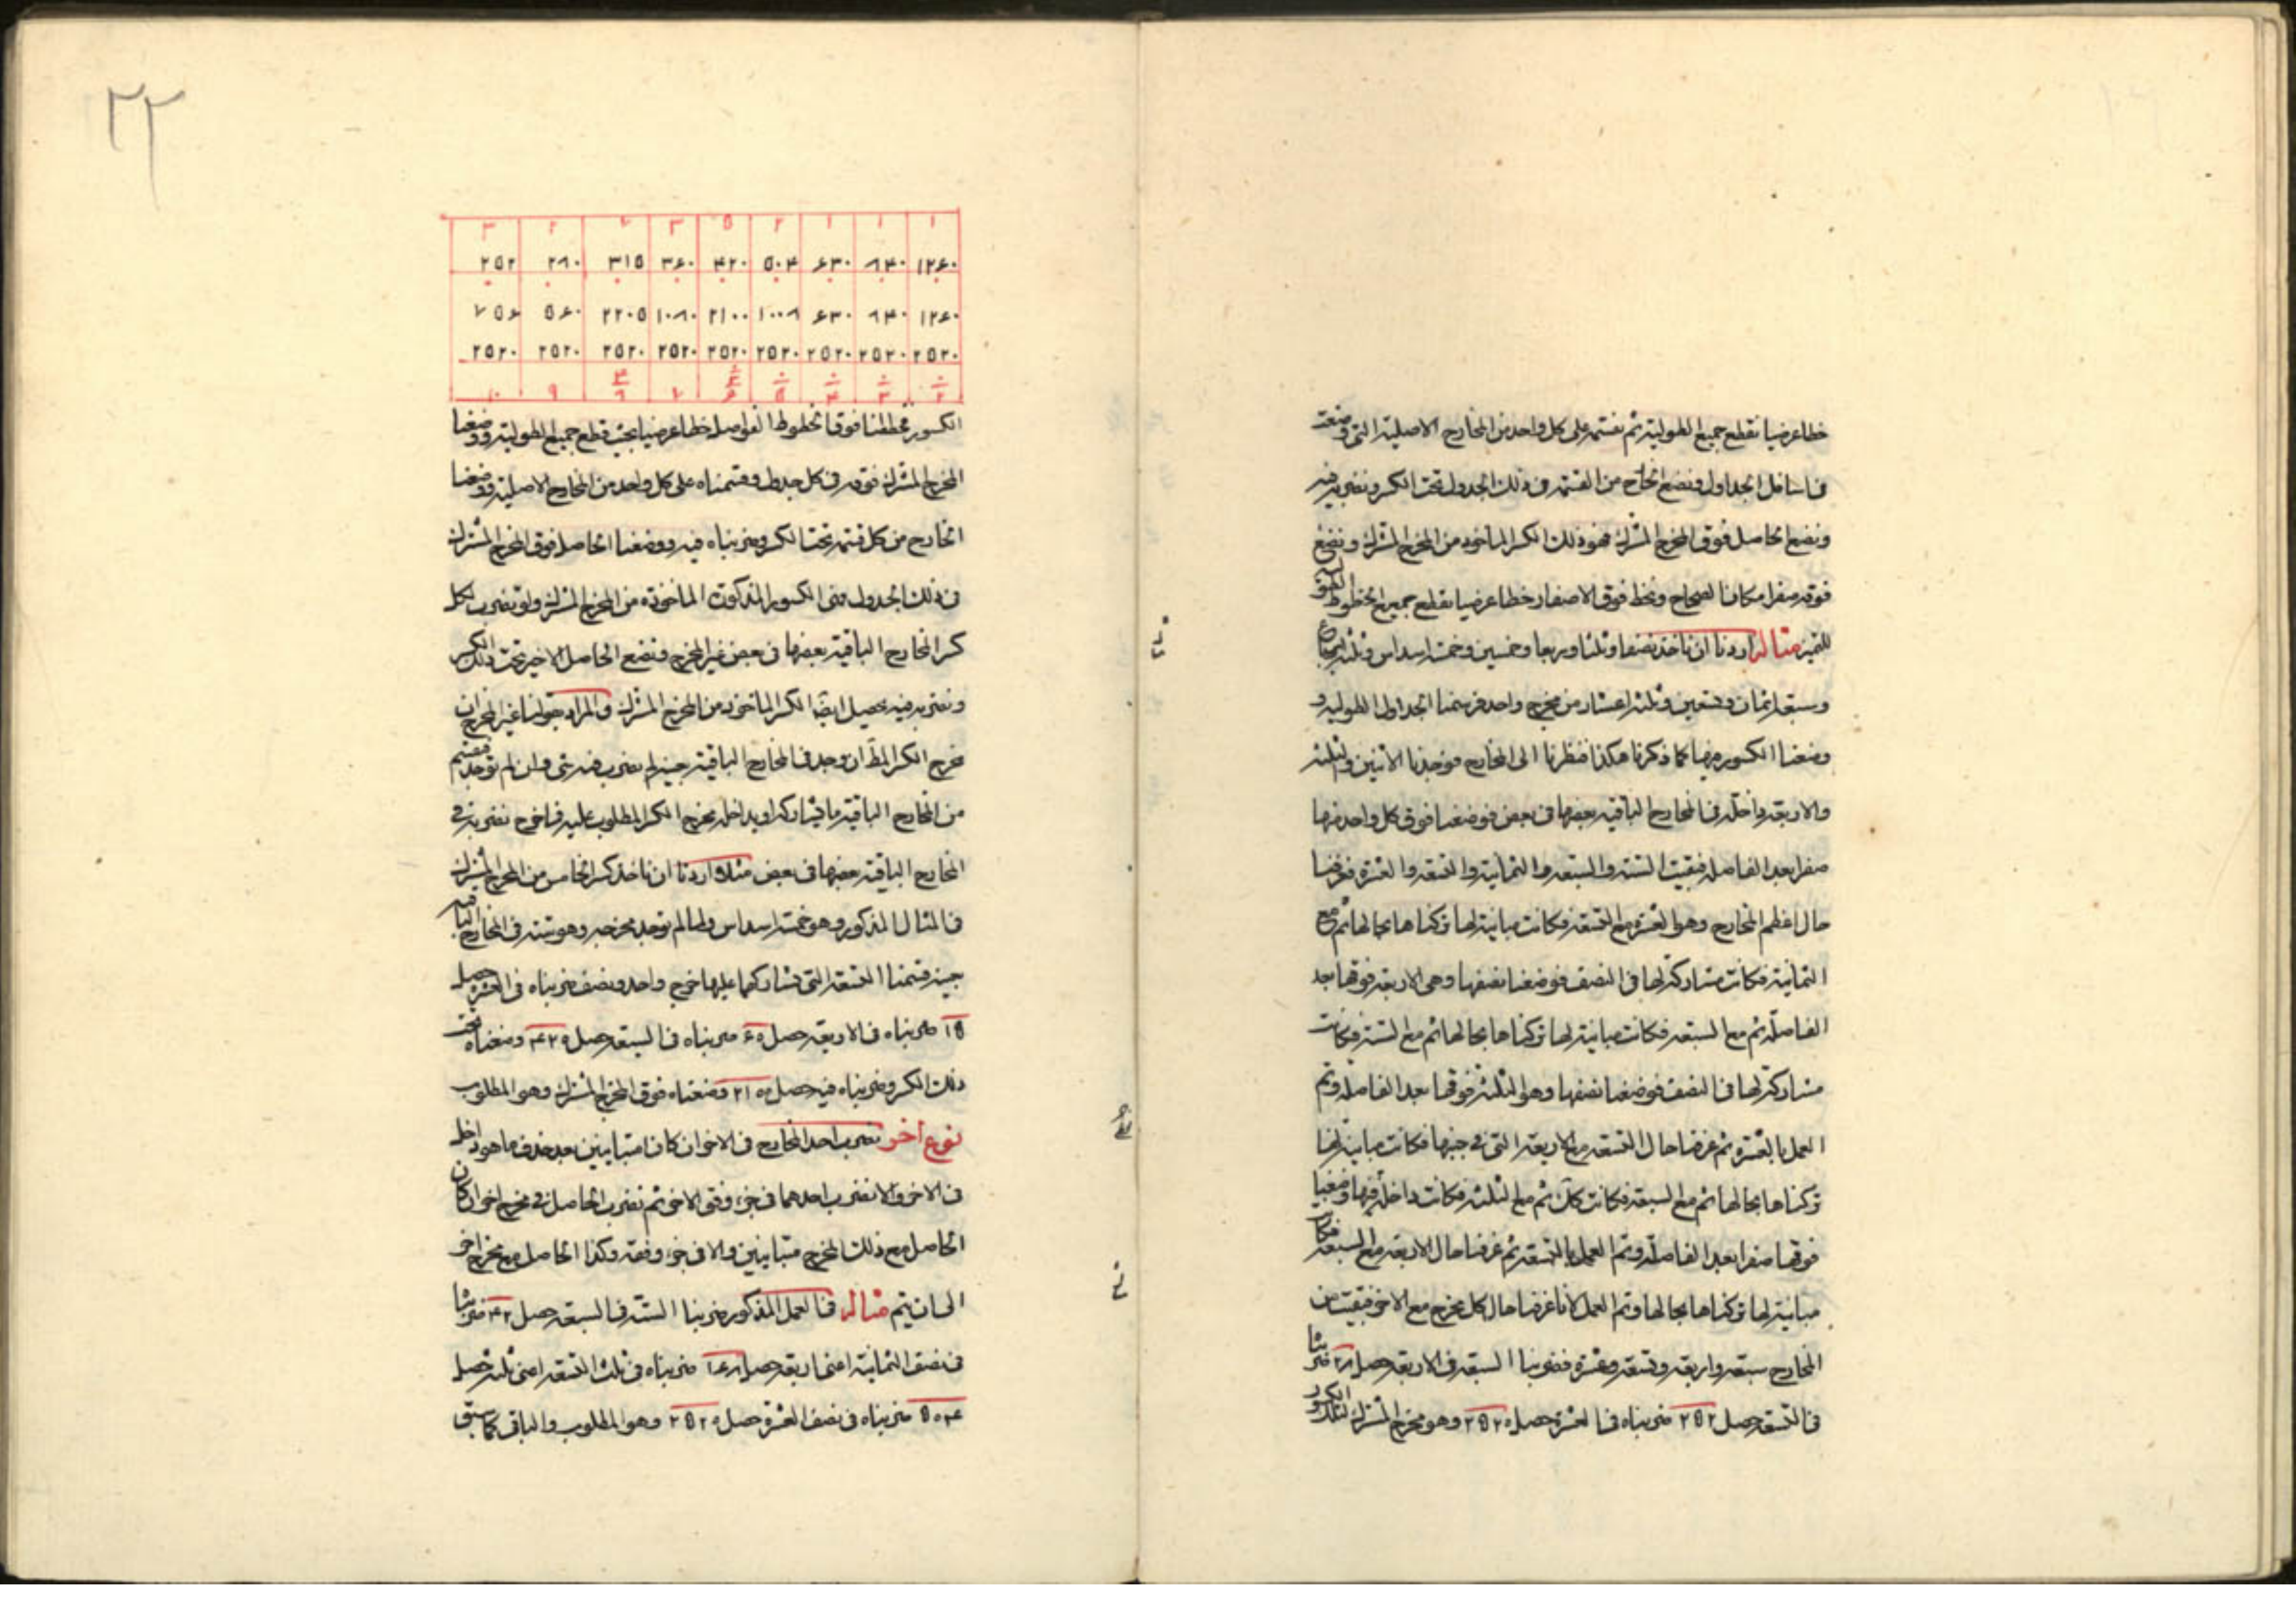 خطا عرضيا نقطع جميع الطولية ثم نقسمه على كل واحد من المخارج الاصلية التى وضعت
فى اسافل الجداول ونضع الخارج من القسمة فى ذلك الجدول تحت الكسر ونضربه فيه
ونضع الحاصل فوق المخرج المشترك فهو ذلك الكسر الماخوذ من المخرج المشترك ونضع
فوقه صفرا مكان الصحاح ونخط فوق الاصفار خطا عرضيا نقطع جميع الخطوط الطولية
للتميز مثاله اردنا ان ناخذ نصفا وثلثا وربعا وخمسين وخمسة اسداس وثلثة اسباع
وسبعة اثمان وتسعين وثلثة اعشار من مخرج واحد فرسمنا الجداول الطولية و
وضعنا الكسور فيها كما ذكرنا هكذا فنظرنا الى المخارج فوجدنا الاثنين والثلثة
والاربعة داخلة فى المخارج الباقية بعضها فى بعض فوضعنا فوق كل واحد منها
صفرا بعد الفاصلة فبقيت الستة والسبعة والثمانية والتسعة والعشرة فعرفنا
حال اعظم المخارج وهو العشرة مع التسعة فكانت مباينة لها تركناها بحالها ثم مع
الثمانية فكانت مشاركة لها فى النصف فوضعنا نصفها وهى الاربعة فوقها بعد
الفاصلة ثم مع السبعة فكانت مباينة لها تركناها بحالها ثم مع الستة فكانت
مشاركة لها فى النصف فوضعنا نصفها وهو الثلثة فوقها بعد الفاصلة وتم
العمل بالعشرة ثم عرفنا حال التسعة مع الاربعة التى فى جنبها فكانت مباينة لها
تركناها بحالها ثم مع السبعة فكانت كك ثم مع الثلثة فكانت داخلة فيها وضعنا
فوقها صفرا بعد الفاصلة وتم العمل بالتسعة ثم عرفنا حال الاربعة مع السبعة فكانت
مباينة لها تركناها بحالها وتم العمل لانا عرفنا حال كل مخرج مع الاخر فبقيت من
المخارج سبعة واربعة وتسعة وعشرة فضربنا السبعة فى الاربعة حصل ٢٨ ضربناه
فى التسعة حصل ٢٥٢ ضربناه فى العشرة حصل ٢٥٢٠ وهو مخرج المشترك لتلك الكسور
٢٢
١ ١ ١ ٢ ٥ ٣ ٧ ٢ ٣
١٢٤٠ ٨۴٠ ۶٣٠ ٥٠۴ ۴٢٠ ٣۶٠ ٣١٥ ٢٨٠ ٢٥٢
١٢۶٠ ٨۴٠ ۶٣٠ ١٠٠٨ ٢١٠٠ ١٠٨٠ ٢٢٠٥ ٥۶٠ ٧٥۶
٢٥٢٠ ٢٥٢٠ ٢٥٢٠ ٢٥٢٠ ٢٥٢٠ ٢٥٢٠ ٢٥٢٠ ٢٥٢٠ ٢٥٢٠
٢ ٣ ۴ ٥ ۶ ٧ ٨ ٩ ١٠
الكسور فخططنا فوق الخطوط الفواصل خطا عرضيا بحيث قطع جميع الطولية ووضعنا
المخرج المشترك فوقه فى كل جدول وقسمناه على كل واحد من المخارج الاصلية ووضعنا
الخارج من كل قسمة تحت الكسر وضربناه فيه ووضعنا الحاصل فوق المخرج المشترك
فى ذلك الجدول فهى الكسور المذكورة الماخوذة من المخرج المشترك ولو نضرب لكل
كسر المخارج الباقية بعضها فى بعض غير المخرج ونضع الحاصل الاخير تحت ذلك الكسر
ونضربه فيه يحصل ايضا الكسر الماخوذ من المخرج المشترك والمراد بقولنا غير المخرج ان
مخرج الكسر المط ان وجد فى المخارج الباقية حينئذ لم نضرب فيه شئ وان لم توجد نقسم
من المخارج الباقية ما يشاركه او يداخله مخرج الكسر المطلوب عليه فما خرج نضربه فى
المخارج الباقية بعضها فى بعض مثلا اردنا ان ناخذ كسر الخامس من المخرج المشترك
فى المثال المذكور وهو خمسة اسداس ولما لم توجد مخرجه وهو ستة فى المخارج الباقية
حينئذ قسمنا التسعة التى تشاركها عليها خرج واحد ونصف ضربناه فى العشرة حصل
١٥ ضربناه فى الاربعة حصل ۶٠ ضربناه فى السبعة حصل ۴٢٠ وضعناه تحت
ذلك الكسر وضربناه فيه حصل ٢١٠٠ وضعناه فوق المخرج المشترك وهو المطلوب
نوع اخر نضرب احد المخارج فى الاخر ان كان متباينين بعد حذف ما هو داخل
فى الاخر والا نضرب احدهما فى جزء وفق الاخر ثم نضرب الحاصل فى مخرج اخر ان كان
الحاصل مع ذلك المخرج متباينين والا فى جزء وفقه وكذا الحاصل مع مخرج اخر
الى ان يتم مثاله فى العمل المذكور ضربنا الستة فى السبعة حصل ۴٢ ضربناه
فى نصف الثمانية اعنى اربعة حصل ١۶٨ ضربناه فى ثلث التسعة اعنى ثلثة حصل
٥٠۴ ضربناه فى نصف العشرة حصل ٢٥٢٠ وهو المطلوب والباقى كما سبق